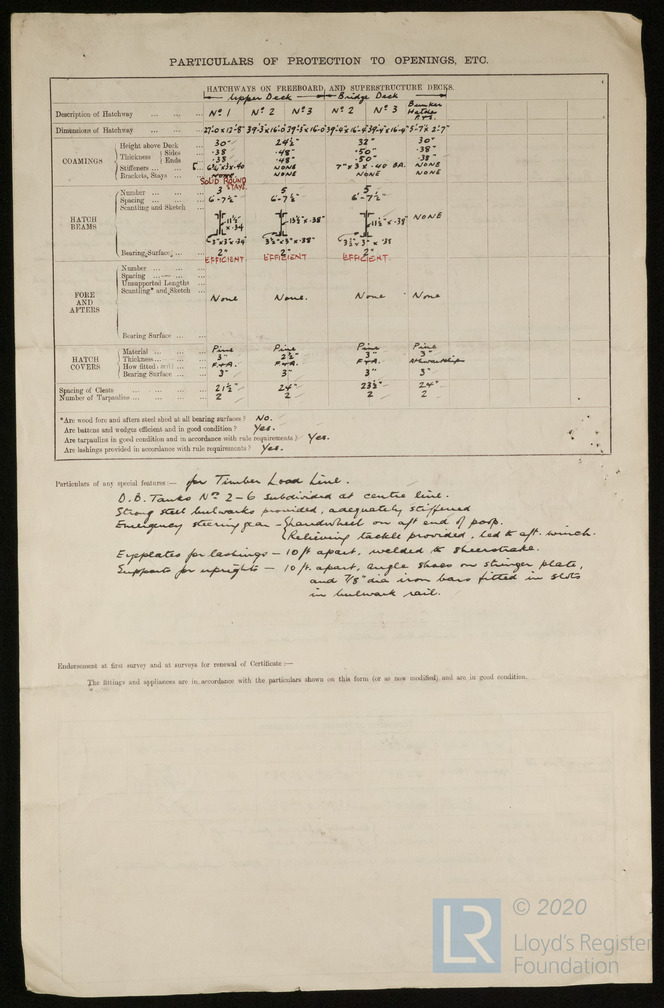 PARTICULARS OF PROTECTION TO OPENINGS, ETC.
HATCHWAYS ON FREEBOARD AND SUPERSTRUCTURE DECKS.
Upper Deck Bridge Deck
Description of Hatchway Nº 1 Nº 2 Nº 3 Nº 2 Nº 3 Bunker Hatches P.&S.
Dimensions of Hatchway 27-0 x 17-8 39-3 x 16-0 39-3 x 16-0 39-4 x 16-4 39-4 x 16-4 5-7 x 2-7
COAMINGS
Height above Deck 30" 24½" 32" 30"
Thickness Sides .38 .48" .50" .38"
Ends .38 .48" .50" .38"
Stiffeners NONE 7" x 3 x .40 B.A. NONE
Brackets, Stays NONE NONE NONE NONE
SOLID ROUND STAYS
HATCH BEAMS
Number 3 5 5
Spacing 6-7½" 6-7½" 6-7½"
Scantling and Sketch NONE
11½" x .34 13½" x .38" 11½" x .38"
3" x 3" x .34" 3½" x 3" x .38" 3½" x 3" x .38
Bearing Surface 2" 2" 2"
EFFICIENT EFFICIENT EFFICIENT.
FORE AND AFTERS
Number
Spacing
Unsupported Lengths
Scantling* and Sketch None None. None None
Bearing Surface
HATCH COVERS
Material Pine Pine Pine Pine
Thickness 3" 2½" 3" 3"
How fitted F.&A. F.&A. F.&A. Athwartships
Bearing Surface 3" 3" 3" 3"
Spacing of Cleats 21½" 24" 23½" 24"
Number of Tarpaulins 2 2 2 2
*Are wood fore and afters steel shod at all bearing surfaces? No.
Are battens and wedges efficient and in good condition? Yes.
Are tarpaulins in good condition and in accordance with rule requirements? Yes.
Are lashings provided in accordance with rule requirements? Yes.
Particulars of any special features:— for Timber Load Line.
D.B. Tanks Nº 2-6 subdivided at centre line.
Strong steel bulwarks provided, adequately stiffened
Emergency steering gear - handwheel on aft end of poop.
Relieving tackle provided, led to aft. winch.
Eyeplates for lashings - 10 ft apart, welded to sheerstrake.
Supports for uprights - 10 ft. apart, angle shoes on stringer plate,
and 7/8" dia iron bars fitted in slots
in bulwark rail.
Endorsement at first survey and at surveys for renewal of Certificate:—
The fittings and appliances are in accordance with the particulars shown on this form (or as now modified) and are in good condition.
LR
© 2020
Lloyd's Register
Foundation